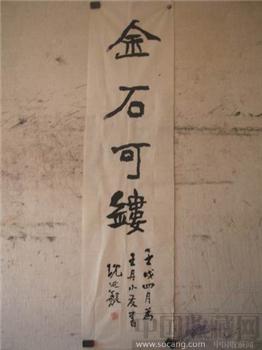 金石可鏤
壬戌四月為
王月小友書
中国收藏网
www.socang.com 中国收藏网